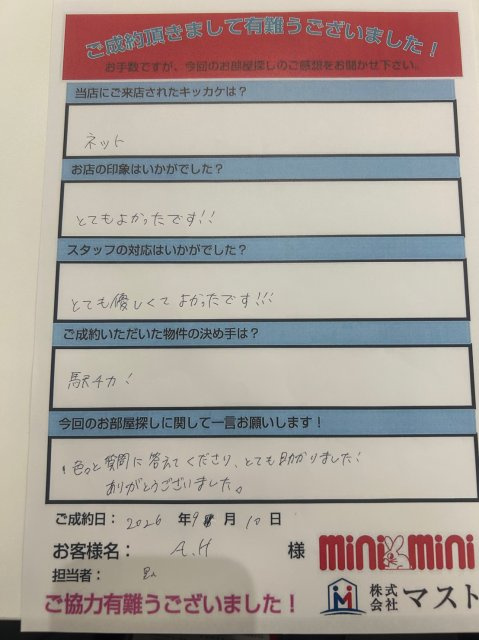 ご成約頂きまして有難うございました！
お手数ですが、今回のお部屋探しのご感想をお聞かせ下さい。
当店にご来店されたキッカケは？
ネット
お店の印象はいかがでした？
とてもよかったです!!
スタッフの対応はいかがでした？
とても優しくてよかったです!!!
ご成約いただいた物件の決め手は？
駅チカ!
今回のお部屋探しに関して一言お願いします！
色々と質問に答えてくださり、とても助かりました!
ありがとうございました。
ご成約日： 2026 年 9 月 10 日
お客様名： A.H 様
mini mini
担当者：
株式会社 マスト
ご協力有難うございました！